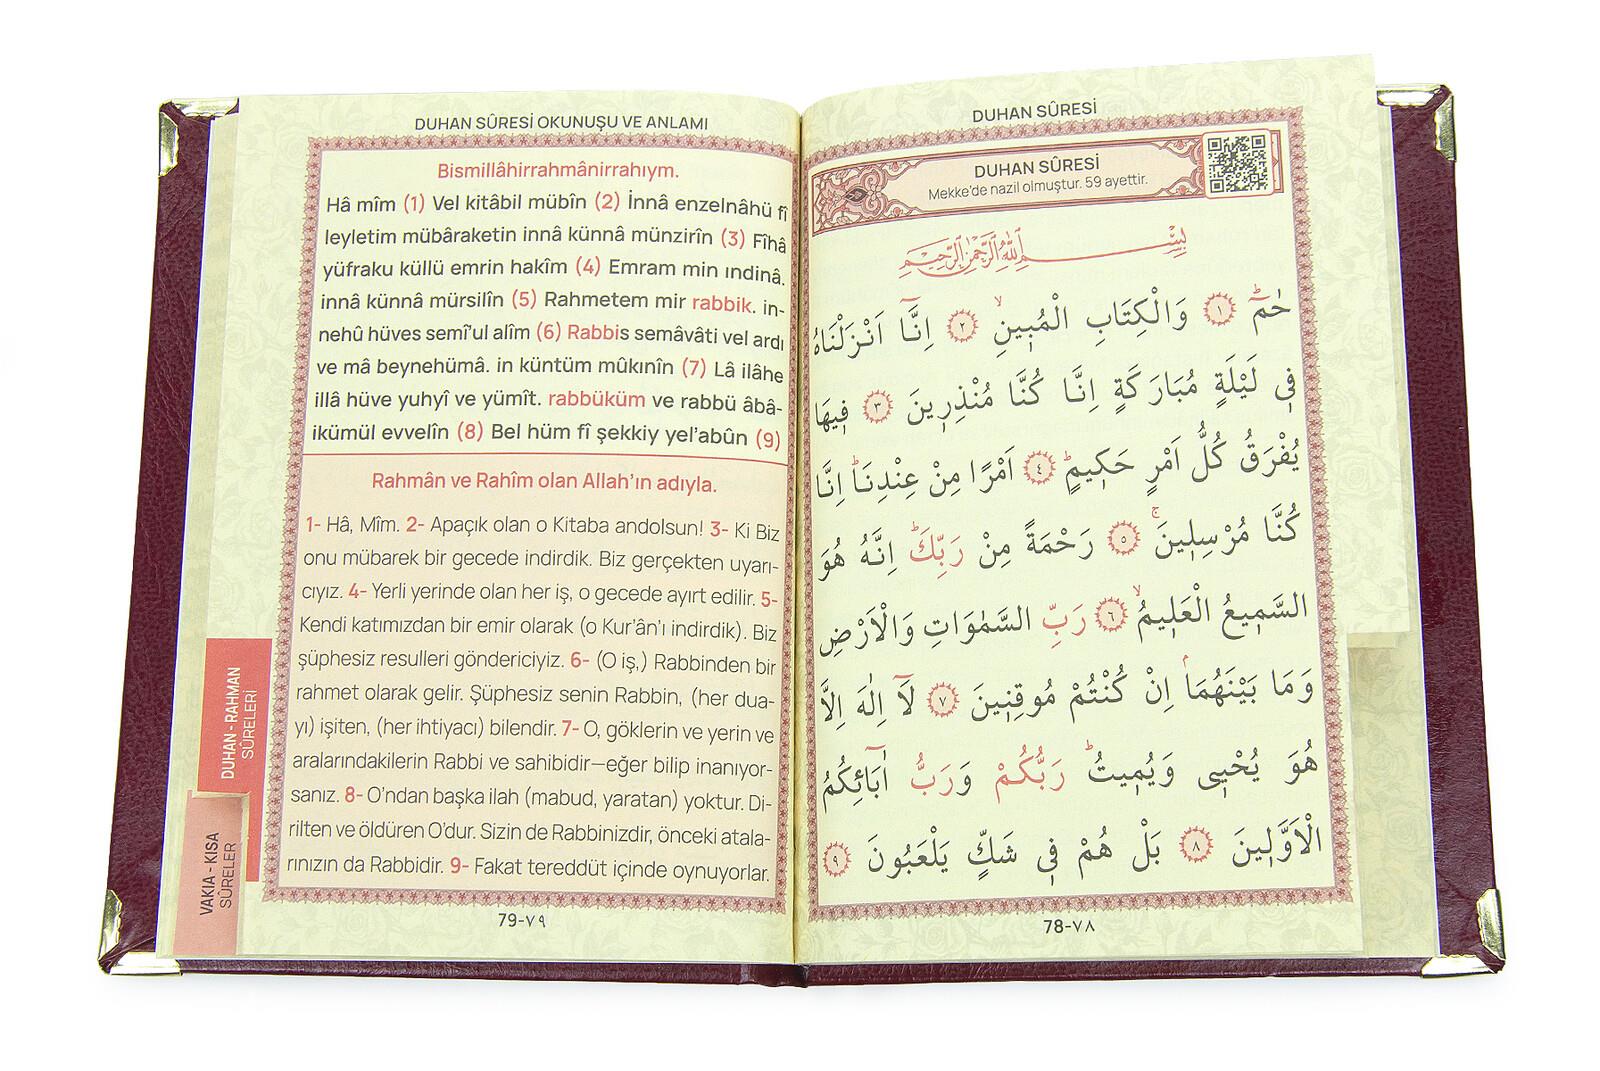 DUHAN SÛRESİ OKUNUŞU VE ANLAMI
Bismillâhirrahmânirrahıym.
Hâ mîm (1) Vel kitâbil mübîn (2) İnnâ enzelnâhü fî
leyletim mübâraketin innâ künnâ münzirîn (3) Fîhâ
yüfraku küllü emrin hakîm (4) Emram min ındinâ.
innâ künnâ mürsilîn (5) Rahmetem mir rabbik. in-
nehû hüves semî'ul alîm (6) Rabbis semâvâti vel ardı
ve mâ beynehümâ. in küntüm mûkınîn (7) Lâ ilâhe
illâ hüve yuhyî ve yümît. rabbüküm ve rabbü âbâ-
ikümül evvelîn (8) Bel hüm fî şekkiy yel'abûn (9)
Rahmân ve Rahîm olan Allah'ın adıyla.
1- Hâ, Mîm. 2- Apaçık olan o Kitaba andolsun! 3- Ki Biz
onu mübarek bir gecede indirdik. Biz gerçekten uyarı-
cıyız. 4- Yerli yerinde olan her iş, o gecede ayırt edilir. 5-
Kendi katımızdan bir emir olarak (o Kur'ân'ı indirdik). Biz
şüphesiz resulleri göndericiyiz. 6- (O iş,) Rabbinden bir
rahmet olarak gelir. Şüphesiz senin Rabbin, (her dua-
yı) işiten, (her ihtiyacı) bilendir. 7- O, göklerin ve yerin ve
aralarındakilerin Rabbi ve sahibidir—eğer bilip inanıyor-
sanız. 8- O'ndan başka ilah (mabud, yaratan) yoktur. Di-
rilten ve öldüren O'dur. Sizin de Rabbinizdir, önceki atala-
rınızın da Rabbidir. 9- Fakat tereddüt içinde oynuyorlar.
79-٧٩
DUHAN - RAHMAN
SÛRELERİ
VAKIA - KISA
SÛRELER
DUHAN SÛRESİ
DUHAN SÛRESİ
Mekke'de nazil olmuştur. 59 ayettir.
بِسْمِ اللّٰهِ الرَّحْمٰنِ الرَّحِيمِ
حٰمٓ ۚ ﴿١﴾ وَالْكِتَابِ الْمُبِينِ ۙ ﴿٢﴾ اِنَّٓا اَنْزَلْنَاهُ
فِي لَيْلَةٍ مُبَارَكَةٍ اِنَّا كُنَّا مُنْذِرِينَ ﴿٣﴾ فِيهَا
يُفْرَقُ كُلُّ اَمْرٍ حَكِيمٍ ۙ ﴿٤﴾ اَمْرًا مِنْ عِنْدِنَا ۜ اِنَّا
كُنَّا مُرْسِلِينَ ۚ ﴿٥﴾ رَحْمَةً مِنْ رَبِّكَ ۜ اِنَّهُ هُوَ
السَّمِيعُ الْعَلِيمُ ۙ ﴿٦﴾ رَبِّ السَّمٰوَاتِ وَالْاَرْضِ
وَمَا بَيْنَهُمَا ۢ اِنْ كُنْتُمْ مُوقِنِينَ ﴿٧﴾ لَٓا اِلٰهَ اِلَّا
هُوَ يُحْيِي وَيُمِيتُ ۜ رَبُّكُمْ وَرَبُّ اٰبَٓائِكُمُ
الْاَوَّلِينَ ﴿٨﴾ بَلْ هُمْ فِي شَكٍّ يَلْعَبُونَ ﴿٩﴾
78-٧٨